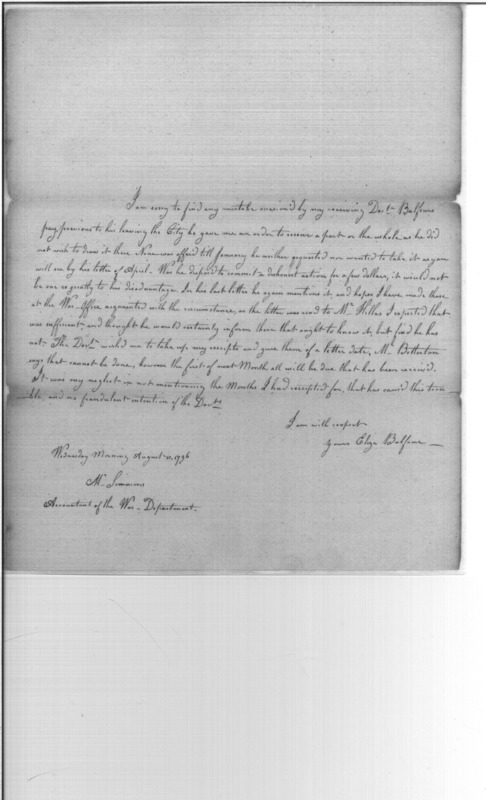 I am sorry to find any mistake occasion'd by my receiving Doctr. Balfours
pay, previous to his leaving the City he gave me an order to receive a part or the whole as he did
not wish to draw it there None was offered till January he neither requested nor wanted to take it as you
will see by his letter of April. Was he disposed to commit a dishonest action for a few dollars, it would not
be see egually to his disadvantage. In his last letter he again mentions it, and hopes I have made those
at the War-Office acquainted with the circumstance, as the letter was read to Mr. Stille I expected that
was sufficient, and thought he would certainly inform those that ought to know it, but find he has
not. The Doctr. wish'd me to take up my receipts and give them of a later date, Mr.
says that cannot be done, however the first of next Month all will be due that has been received.
It was my neglect in not mentioning the Months I had receipted for, that has caused this trou-
ble, and no fraudulent intention of the Doctr.
I am with respect
Yours Eliza Balfour
Wednesday Morning August 1796
Mr. Simmons
Accountant of the War-Department.